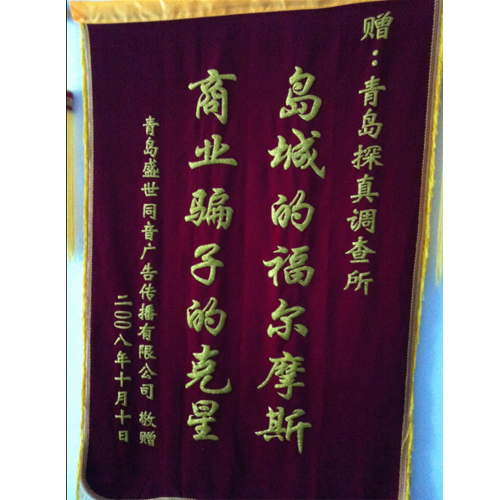 赠：青岛探真调查所
岛城的福尔摩斯
商业骗子的克星
青岛盛世同音广告传播有限公司 敬赠
二〇〇八年十月十日